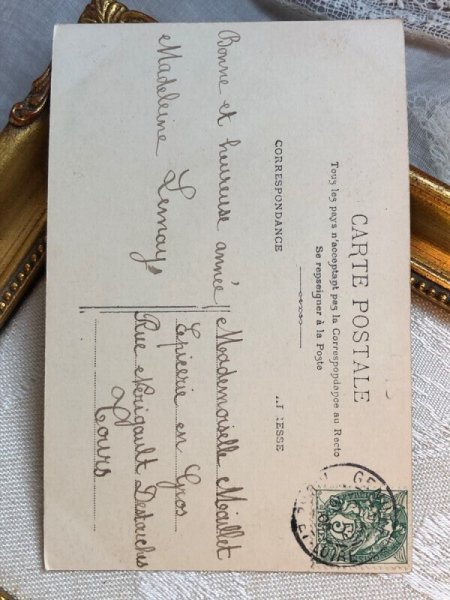 CARTE POSTALE
Tous les pays n'acceptant pas la Correspondance au Recto
Se renseigner à la Poste
CORRESPONDANCE
Bonne et heureuse année
Madeleine Lemay
Mademoiselle Maillet
Epicerie en Gros
Rue Nérigault Destouches
Tours